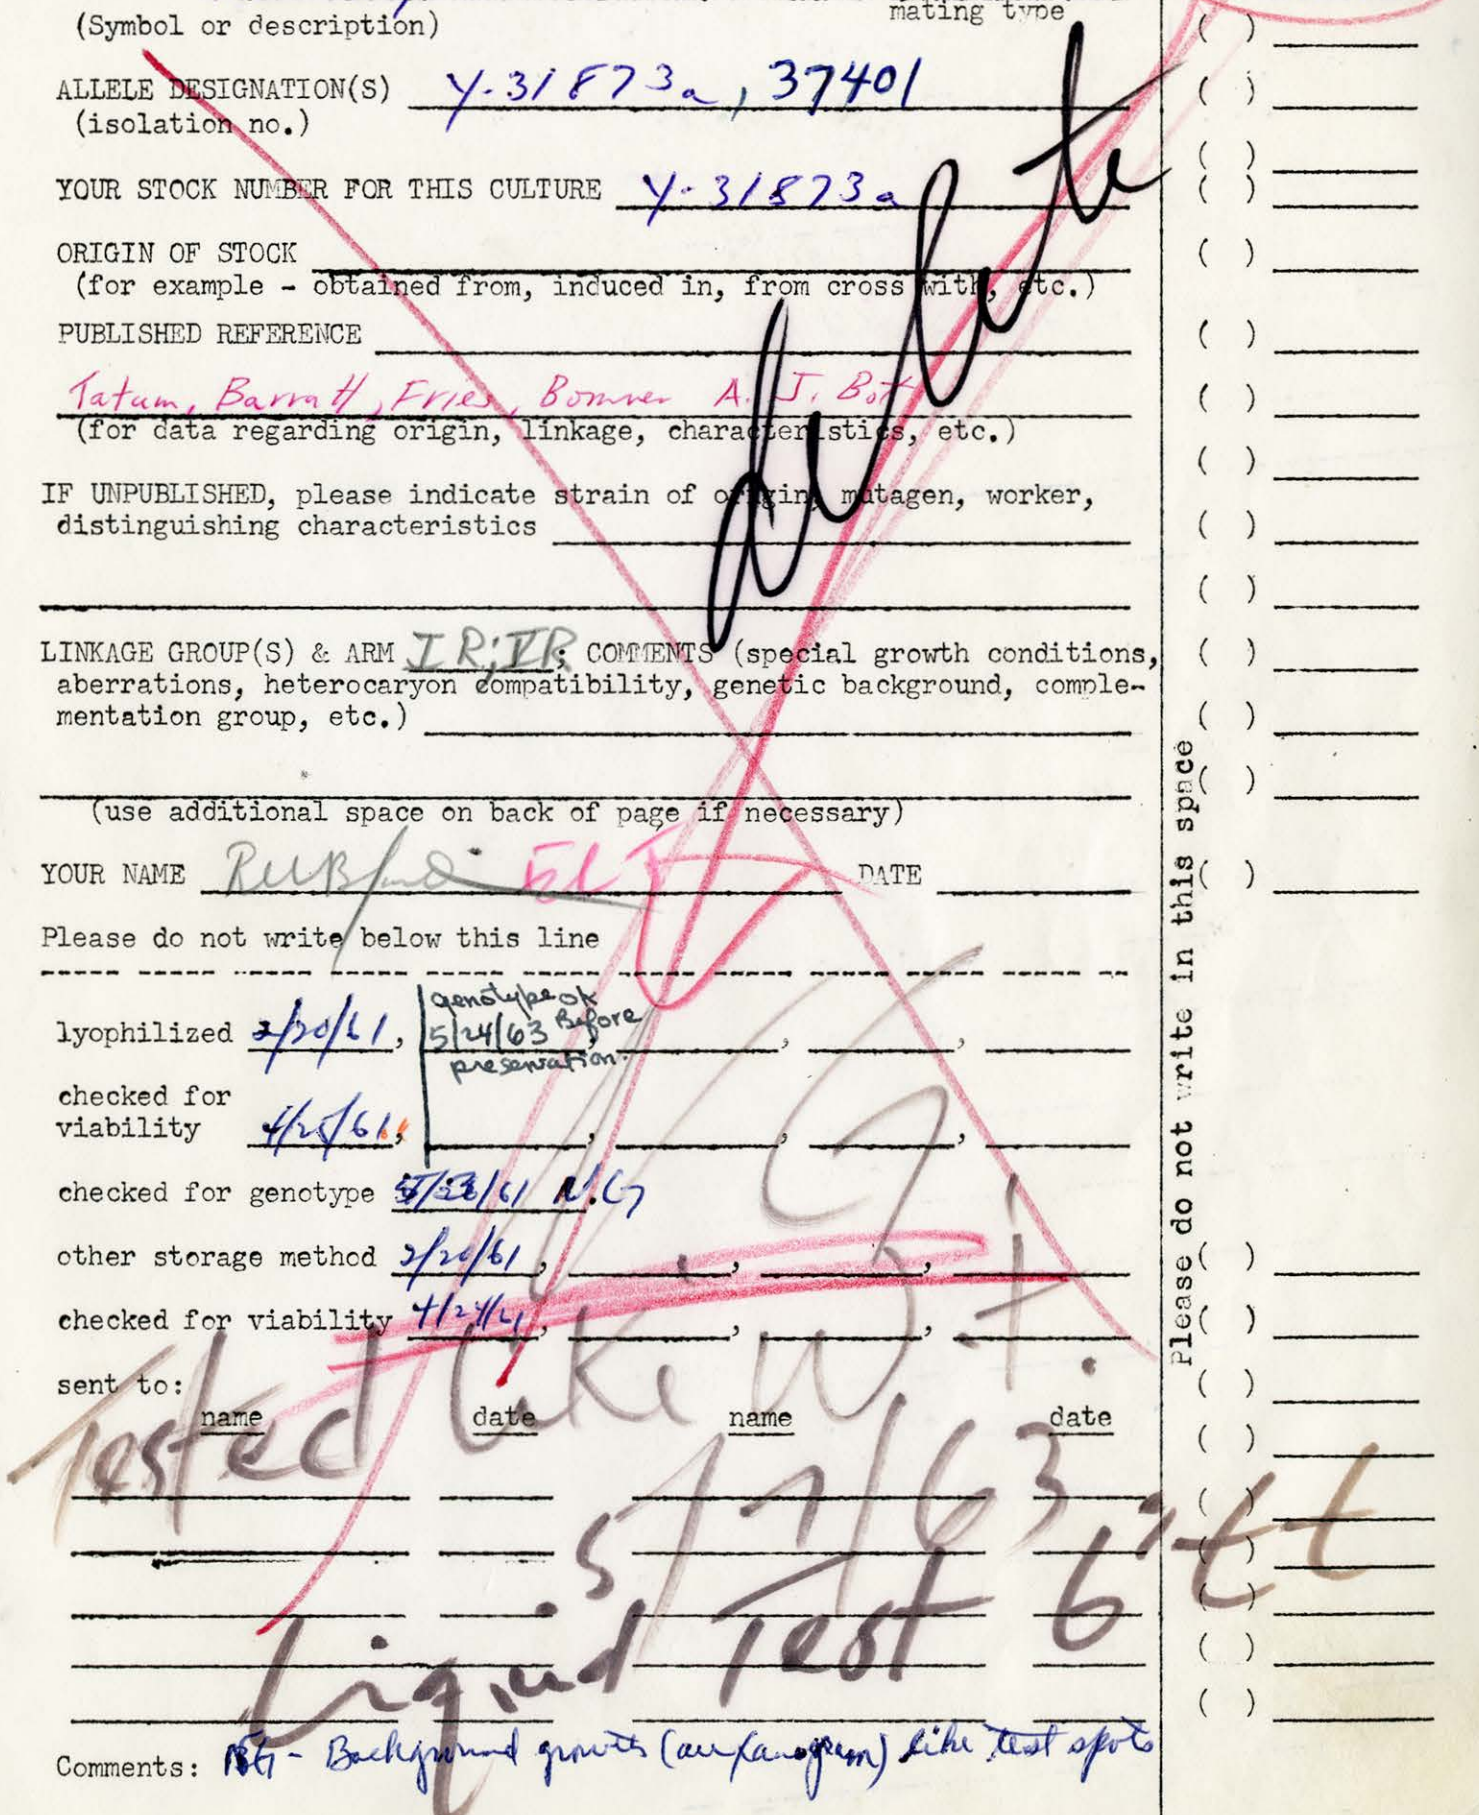 mating type
(Symbol or description)
ALLELE DESIGNATION(S) Y-31873a, 37401
(isolation no.)
YOUR STOCK NUMBER FOR THIS CULTURE Y-31873a
ORIGIN OF STOCK
(for example - obtained from, induced in, from cross with, etc.)
PUBLISHED REFERENCE
Tatum, Barratt, Fries, Bonner A. J. Bot
(for data regarding origin, linkage, characteristics, etc.)
delete
IF UNPUBLISHED, please indicate strain of origin, mutagen, worker,
distinguishing characteristics
LINKAGE GROUP(S) & ARM IR; ; COMMENTS (special growth conditions,
aberrations, heterocaryon compatibility, genetic background, comple-
mentation group, etc.)
(use additional space on back of page if necessary)
YOUR NAME DATE
Please do not write below this line
lyophilized 2/20/61,
genotype ok
5/24/63 Before
preservation.
checked for
viability 4/25/61,
checked for genotype /61 N.G
other storage method 2/20/61,
checked for viability 4/24/61,
sent to:
name date name date
Tested like W.t.
5/7/63
Liquid Test
Comments: NG - Background growth (auxanogram) like test spots
Please do not write in this space